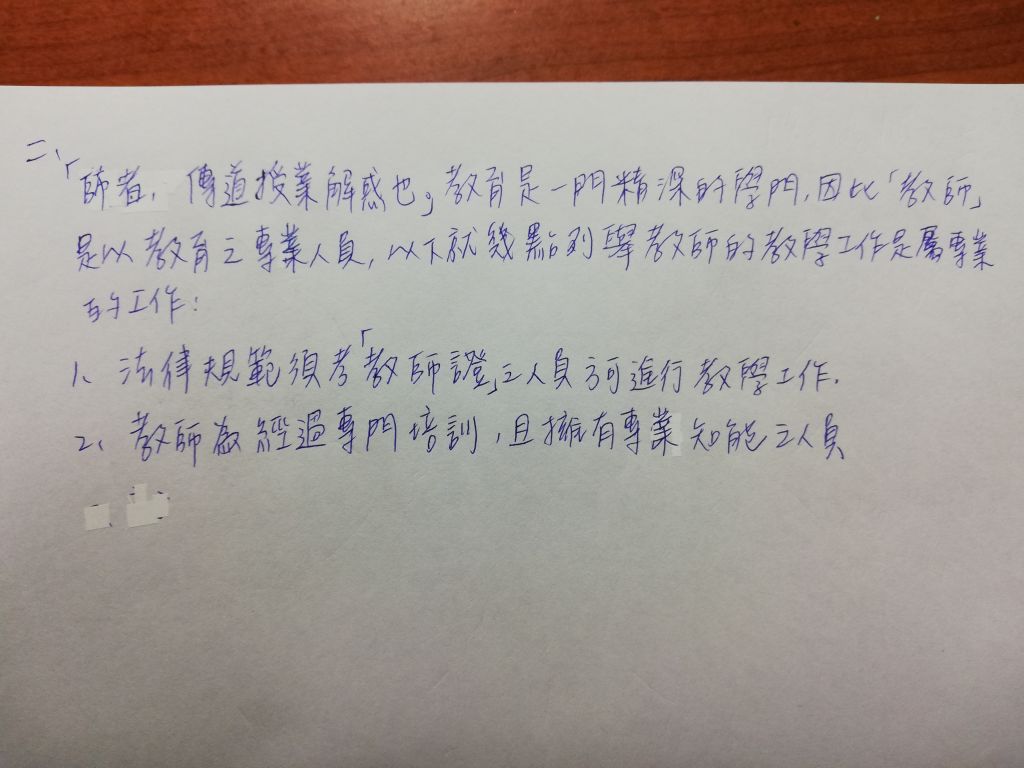 二、「師者,傳道授業解惑也」教育是一門精深的學門,因此「教師」
是以教育之專業人員,以下就幾點列舉教師的教學工作是屬專業
的工作:
1、法律規範須考「教師證」之人員方可進行教學工作.
2、教師為經過專門培訓,且擁有專業知能之人員